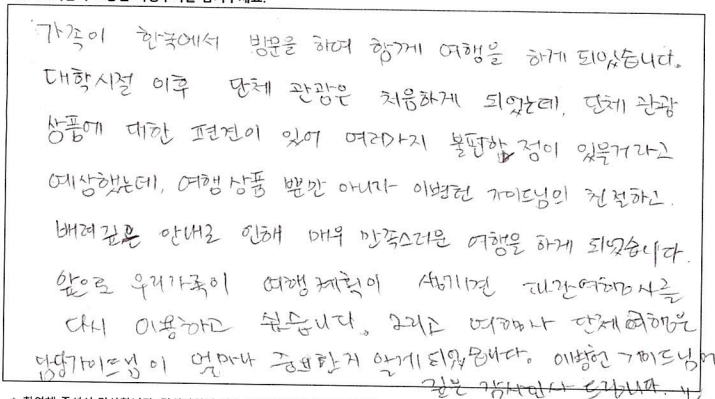 가족이 한국에서 방문을 하여 함께 여행을 하게 되었습니다.
대학시절 이후 단체 관광은 처음하게 되었는데, 단체 관광
상품에 대한 편견이 있어 여러가지 불편한 점이 있을거라고
예상했는데, 여행상품 뿐만 아니라 이병헌 가이드님의 친절하고
배려깊은 안내로 인해 매우 만족스러운 여행을 하게 되었습니다.
앞으로 우리가족이 여행계획이 생기면 여행사를
다시 이용하고 싶습니다. 그리고 여행사 단체여행은
담당가이드님이 얼마나 중요한지 알게되었습니다. 이병헌 가이드님께
깊은 감사인사 드립니다.